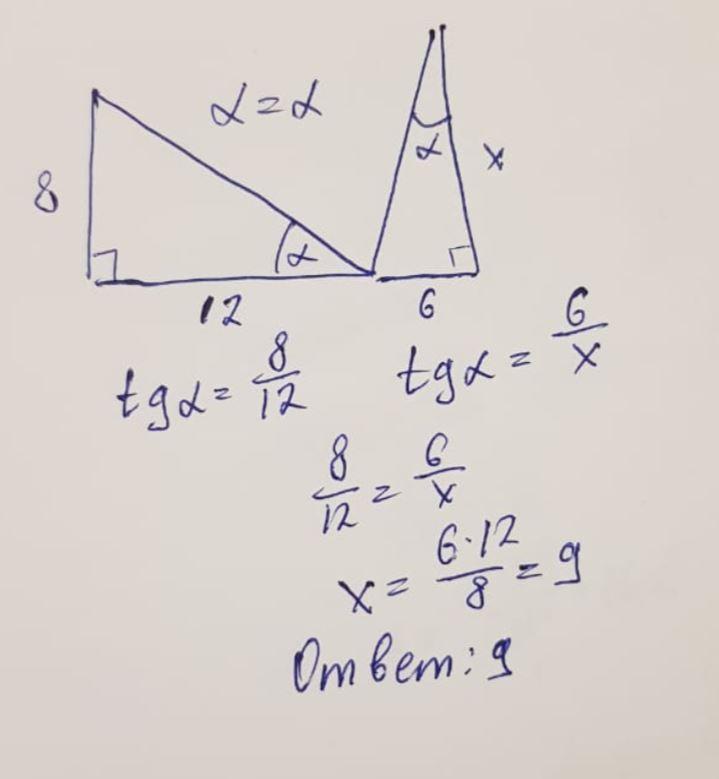 α = α
α
x
8
α
12
6
tg α = 8/12
tg α = 6/x
8/12 = 6/x
x = 6·12/8 = 9
Ответ: 9